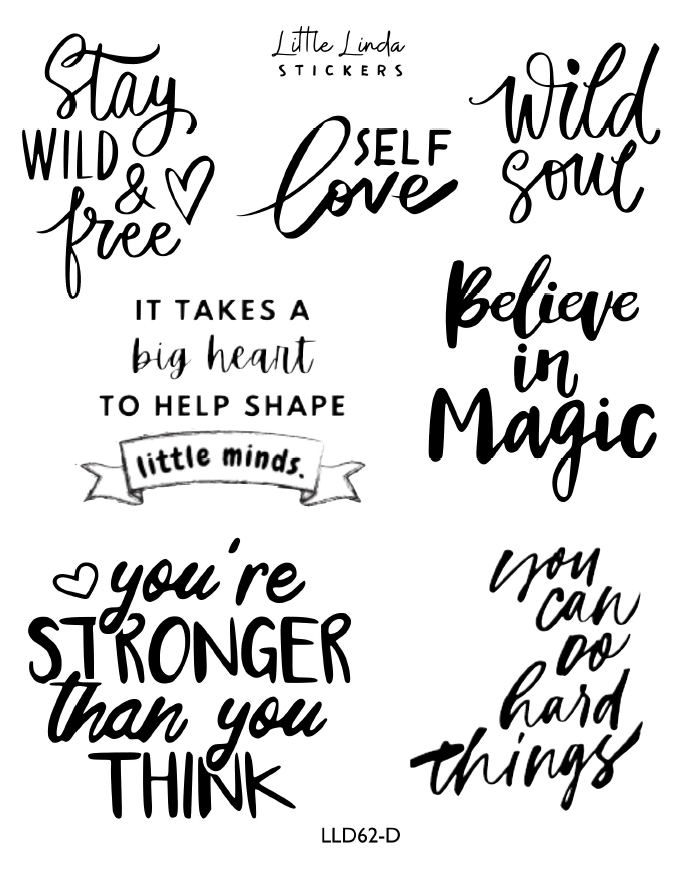 Little Linda
STICKERS
Stay
WILD
&
free
SELF
love
wild
soul
IT TAKES A
big heart
TO HELP SHAPE
little minds.
Believe
in
Magic
you're
STRONGER
than you
THINK
you
can
DO
hard
things
LLD62-D